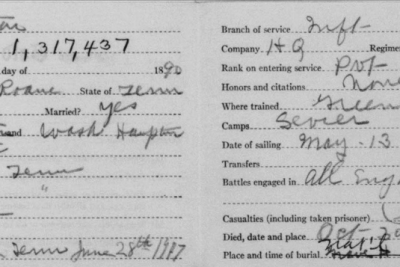 1,317,437
day of 1890
Roane State of Tenn
Married? Yes
and Wash Hampton
Tenn
"
Tenn June 28th 1917
Branch of service Inft
Company HQ Regime
Rank on entering service Pvt
Honors and citations None
Where trained Green
Camps Sevier
Date of sailing May - 13
Transfers
Battles engaged in All Eng
Casualties (including taken prisoner)
Died, date and place Oct 20
Place and time of burial